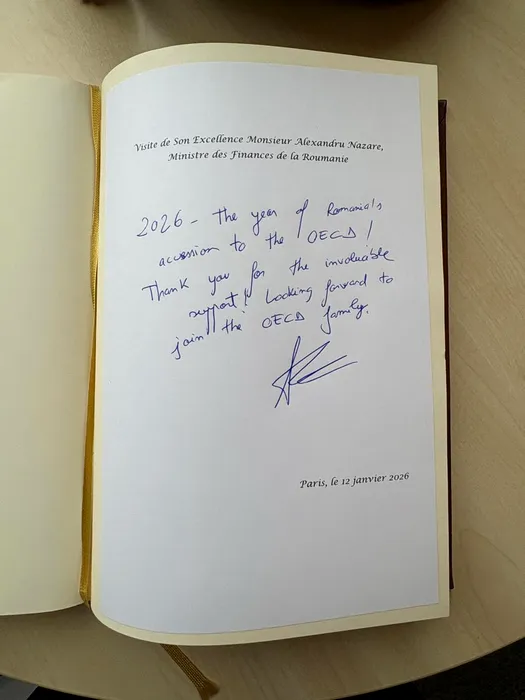 Visite de Son Excellence Monsieur Alexandru Nazare,
Ministre des Finances de la Roumanie
2026 - the year of Romania's
accession to the OECD!
Thank you for the invaluable
support! Looking forward to
join the OECD family.
Paris, le 12 janvier 2026